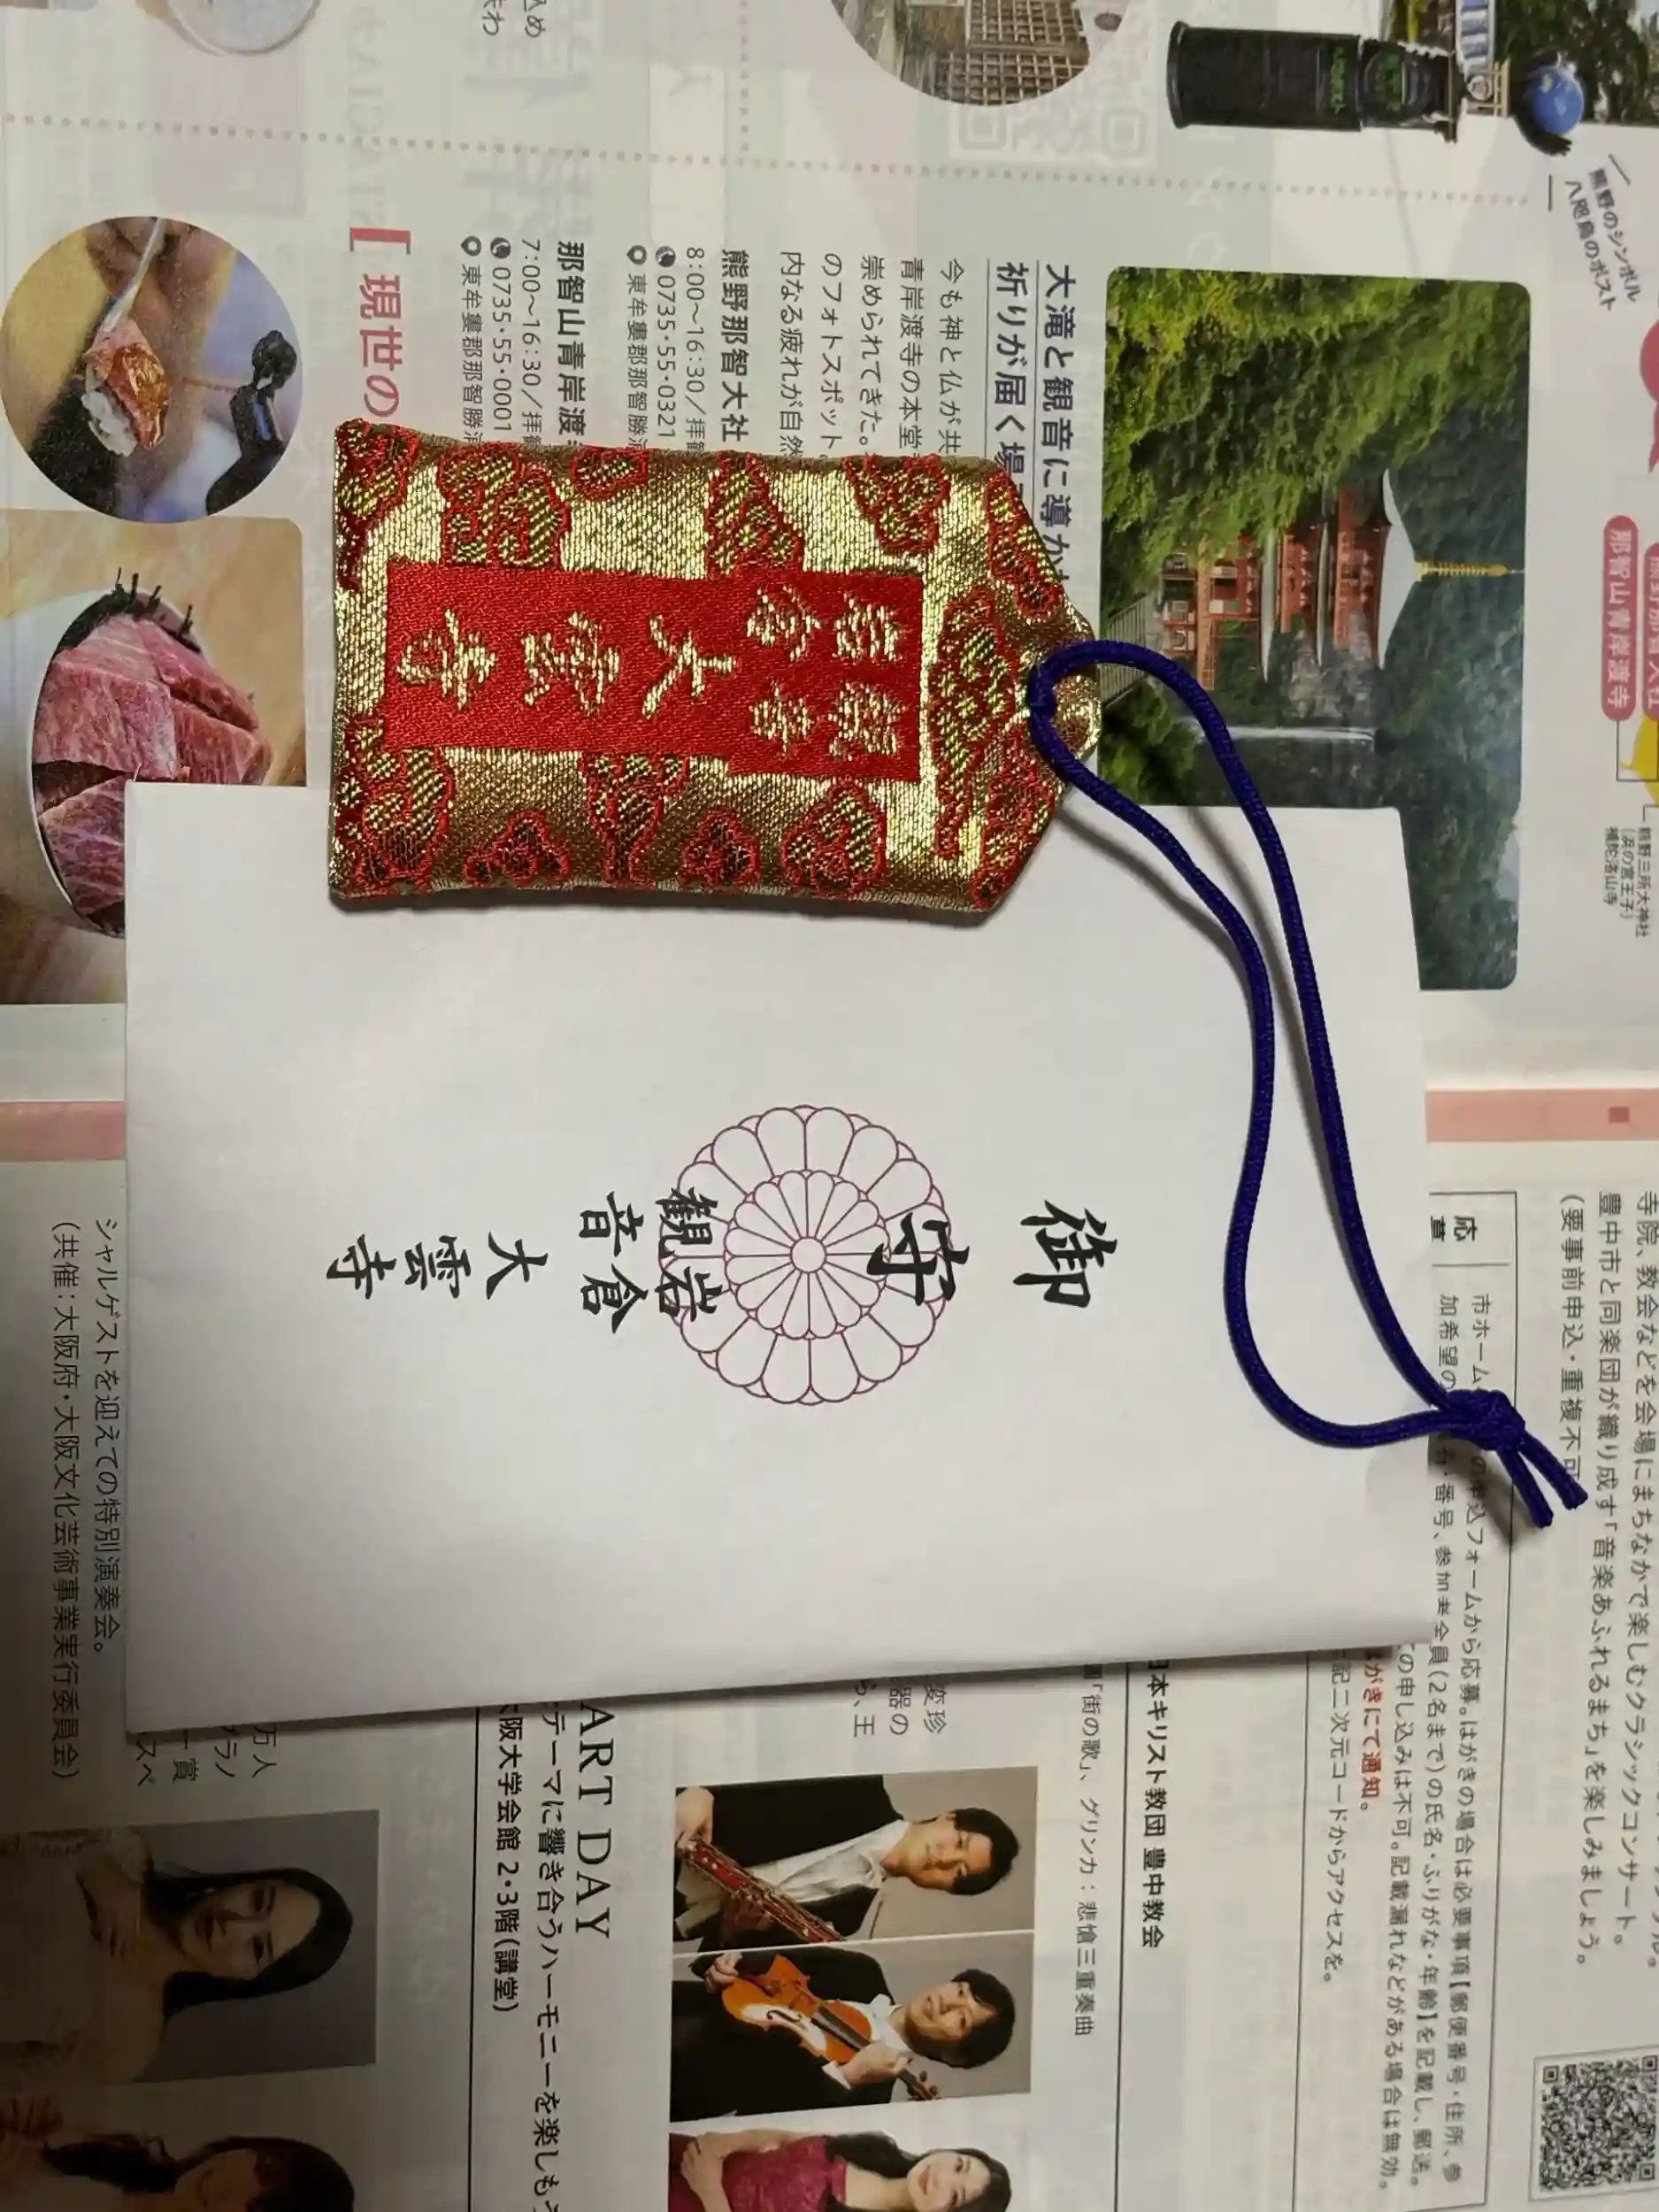 岩倉
観音
大雲寺
御守
岩倉
観音
大雲寺
熊野のシンボル
八咫烏のポスト
那智山青岸渡寺
熊野三所大神社
(浜の宮王子)
補陀洛山寺
大滝と観音に導か
祈りが届く場
今も神と仏が共
青岸渡寺の本堂
崇められてきた。
のフォトスポット
内なる疲れが自然
熊野那智大社
8:00〜16:30/拝観
0735・55・0321
東牟婁郡那智勝浦
那智山青岸渡
7:00〜16:30/拝観
0735・55・0001
東牟婁郡那智勝浦
[ 現世の
寺院、教会などを会場にまちなかで楽しむクラシックコンサート。
豊中市と同楽団が織り成す「音楽あふれるまち」を楽しみましょう。
(要事前申込・重複不可
市ホーム
の申込フォームから応募。はがきの場合は必要事項【郵便番号・住所、参
加希望の
番号、参加者全員(2名まで)の氏名・ふりがな・年齢】を記載し、郵送。
の申し込みは不可。記載漏れなどがある場合は無効。
がきにて通知。
記二次元コードからアクセスを。
日本キリスト教団 豊中教会
「街の歌」、グリンカ:悲愴三重奏曲
変珍
器の
ら、王
ART DAY
テーマに響き合うハーモニーを楽しもう
大阪大学会館 2・3階(講堂)
万人
ラノ
ー賞
スペ
シャルゲストを迎えての特別演奏会。
(共催:大阪府・大阪文化芸術事業実行委員会)